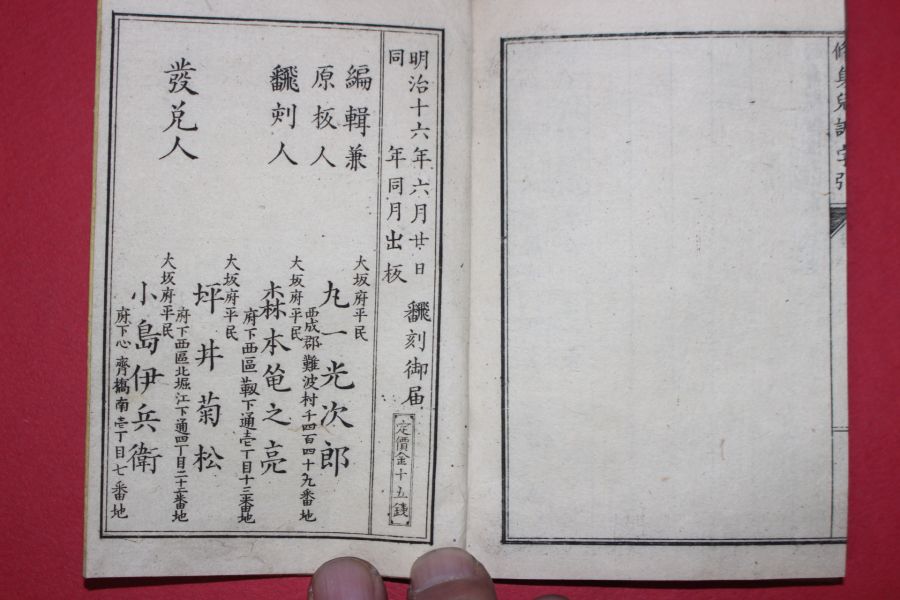 修身兒訓字引
明治十六年六月廿日 飜刻御届
同 年同月出板
定價金十五錢
編輯兼
原板人
大坂府平民
丸一光次郎
西成郡難波村千四百四十九番地
飜刻人
大坂府平民
森本竾之亮
府下西區靱下通壱丁目十三番地
大坂府平民
坪井菊松
府下西區北堀江下通四丁目二十二番地
發兌人
大坂府平民
小島伊兵衛
府下心齊橋南壱丁目七番地